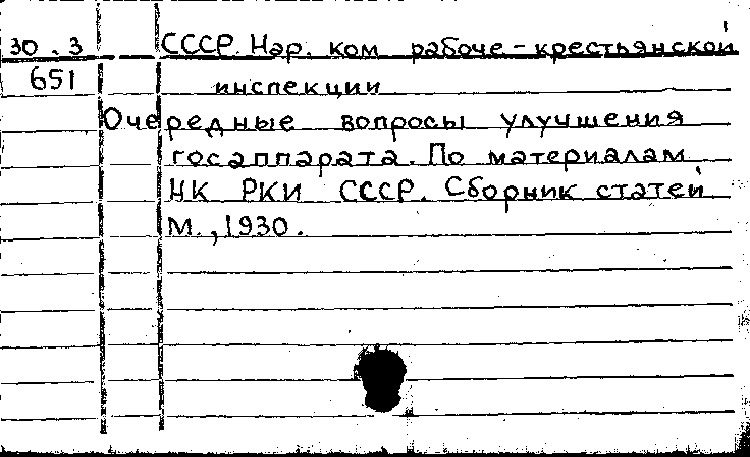 30.3 СССР. Нар. ком рабоче-крестьянской
651 инспекции
Очередные вопросы улучшения
госаппарата. По материалам
НК РКИ СССР. Сборник статей
М., 1930.